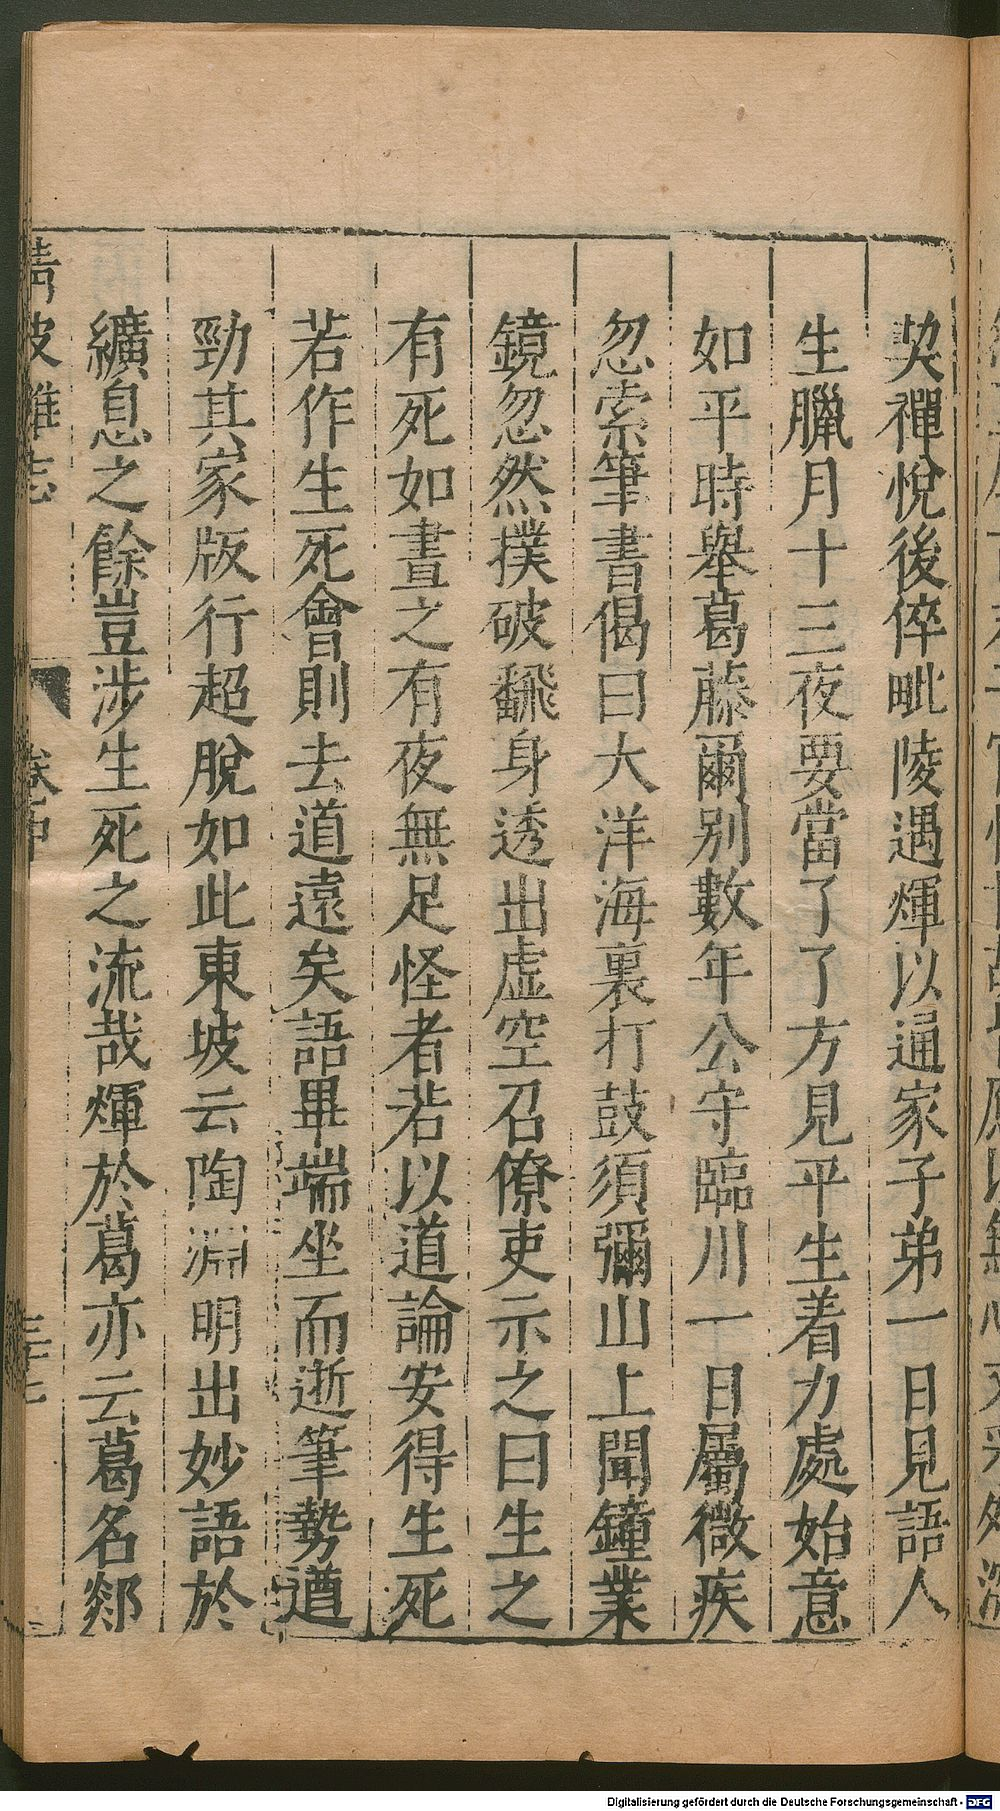 契禪悅後倅毗陵遇煇以通家子弟一日見語人
生臘月十三夜要當了了方見平生着力處始意
如平時舉葛藤爾别數年公守臨川一日屬微疾
忽索筆書偈曰大洋海裏打鼓須彌山上聞鐘業
鏡忽然撲破翻身透出虛空召僚吏示之曰生之
有死如晝之有夜無足怪者若以道論安得生死
若作生死會則去道遠矣語畢端坐而逝筆勢遒
勁其家版行超脫如此東坡云陶淵明出妙語於
纊息之餘豈涉生死之流哉煇於葛亦云葛名郯
清波雜志
Digitalisierung gefördert durch die Deutsche Forschungsgemeinschaft - DFG